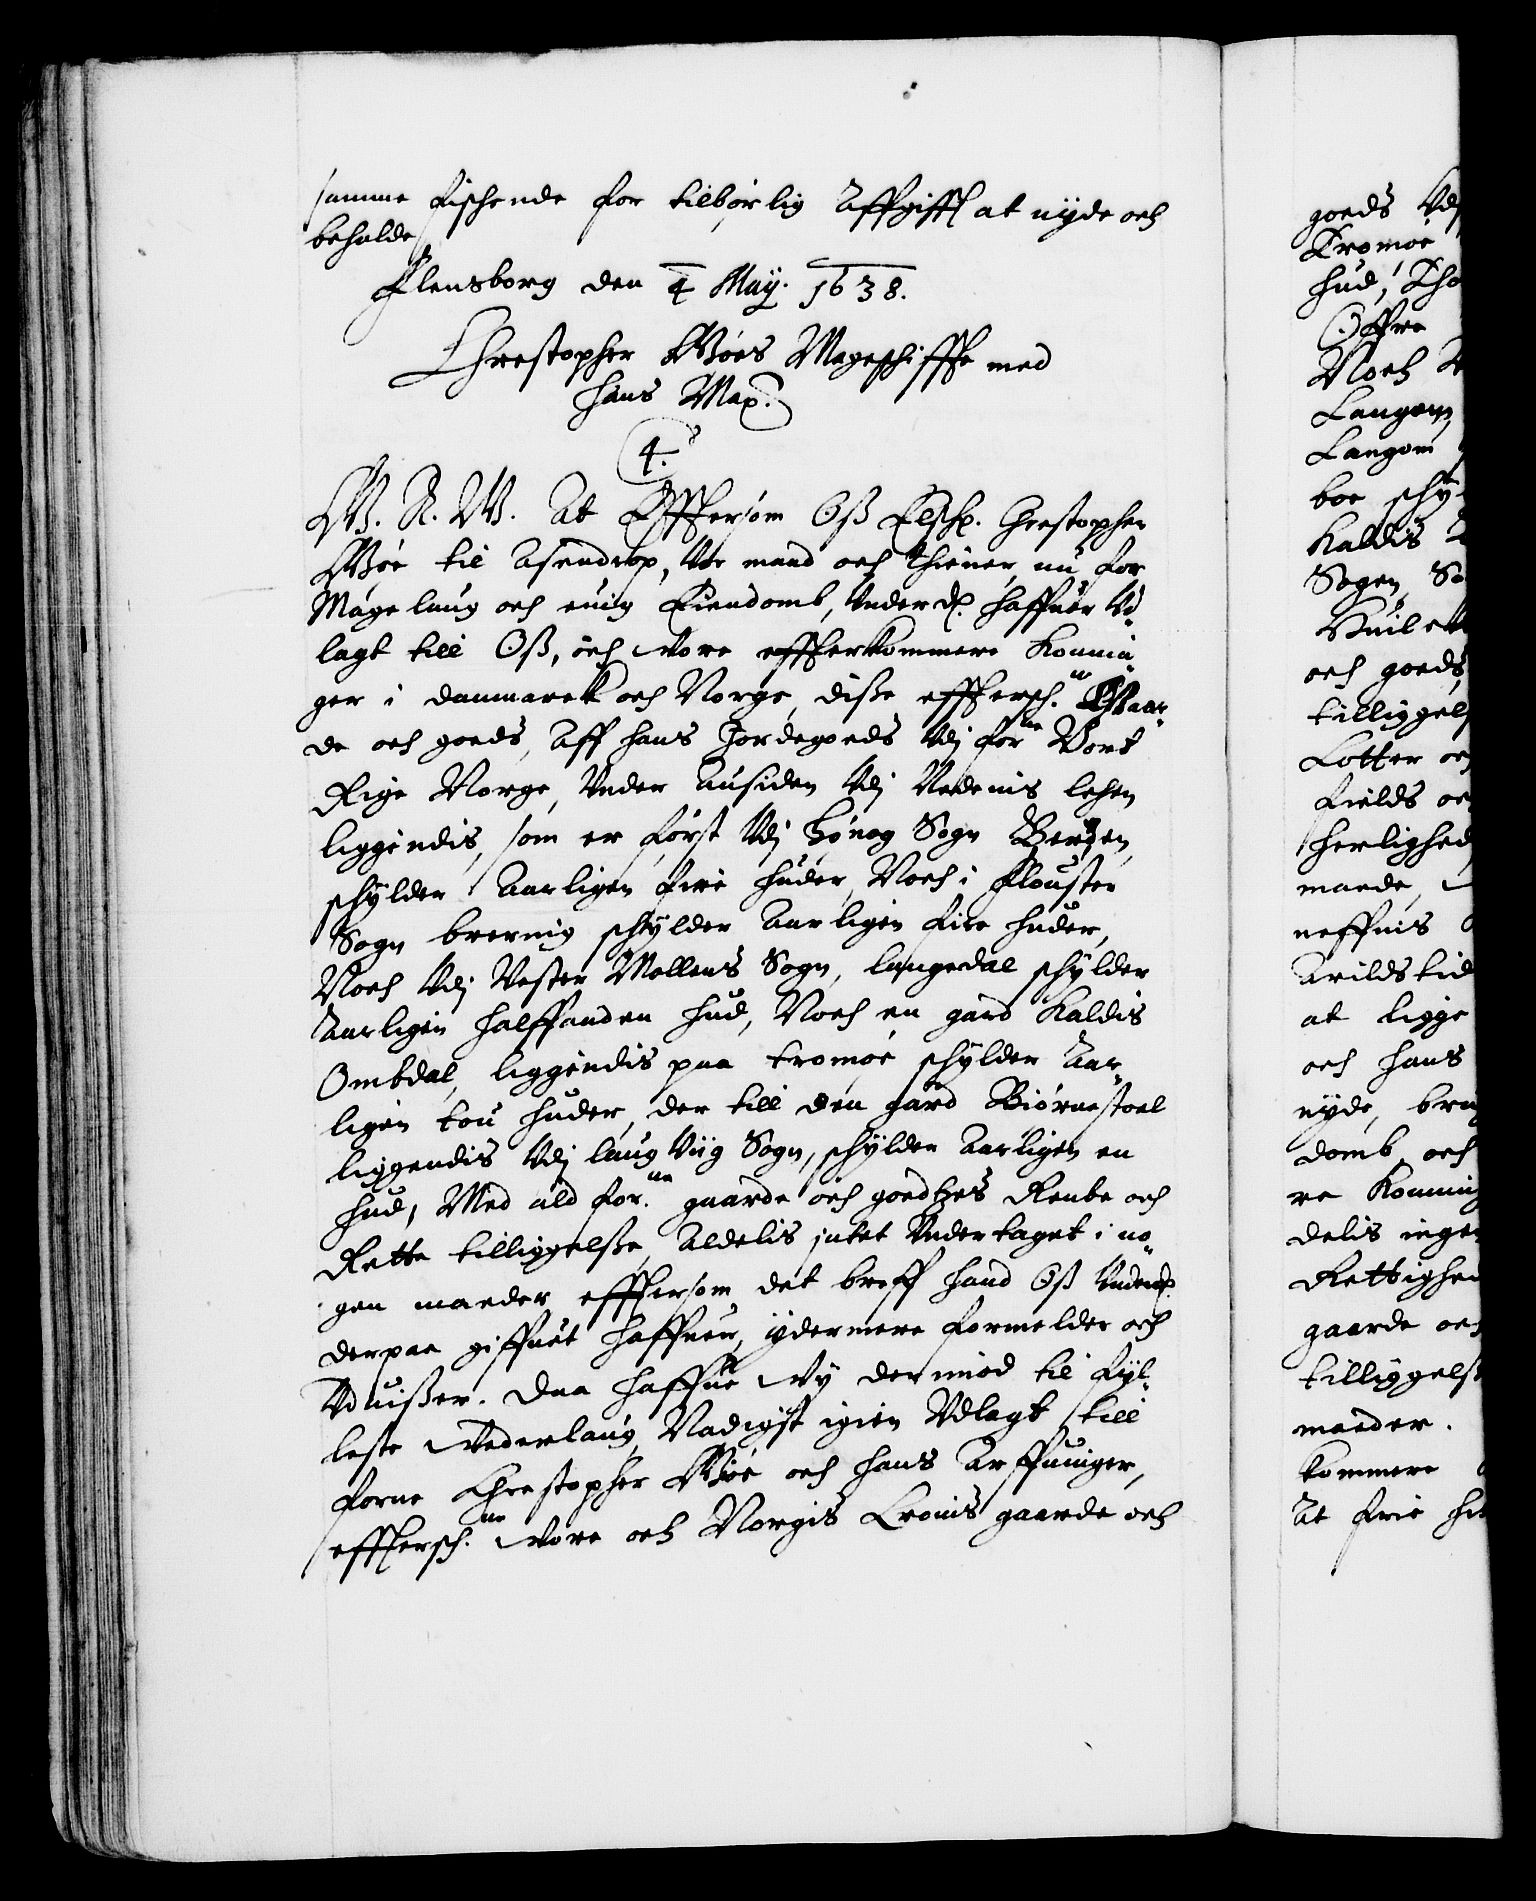 samme fischende for tilbørlig Affgifft at nyde och
beholde,
Flensborg den 4 Maÿ. 1638.
Chrestopher Gøes Mageschiffte med
Hans Maÿ.
4.
G. A. W. At Effterßom Oß Elsch. Chrestopher
Gøe til Asendrop, Vor mand och thiener, nu for
Magelaug och euig Eiendomb, Vnderd. haffuer Vd
lagt till Oß, och Vore effterkommere Konnin
ger i danmarck och Norge, diße efftersch.ne Gaar
de och goeds, Aff hans Jordegoeds Vdj for.ne Vort
Rige Norge, Vnder Ausiden Vdj Nedenis lehen
liggendis, som er først Vdj Hønog Sogn Berzen,
schylder Aarligen fire huder, Noch i Flouster
Sogn brernig schylder Aarligen fire huder,
Noch Vdj Vester Mollens Sogn, langedal schylder
Aarligen halffanden hud, Noch en gard Kaldis
Ombdal, liggendis paa tromøe schylder Aar
ligen tou huder, der till den gård Biørnestoel
liggendis Vdj laug Viig Sogn, schylder Aarligen en
hud, Med ald for.ne gaarde och goedtzes Rente och
Rette tilliggelße, Aldelis intet Vndertaget i no
gen maader efftersom det breff hand Oß Vnderd.
derpaa giffuet haffuer, ÿdermere formelder och
Vduißer. Daa haffue Vy der imod til fyl
leste Vederlaug Nadigst igien Vdlagt till
forne Chrestopher Gøe och hans Arffuinger,
efftersch.ne Vore och Norgis Cronis gaarde och
goeds Vdj
Tromøe
hud, Tho
Offre
Noch
Langøen
Langøm
boe schy
Kaldis
Sogen, So
Huilcke
och goeds
tilliggels
Lotter oc
fields oc
herlighed
maade,
neffnis
Arilds tid
at ligge
och hans
nyde, bru
domb, och
re Konning
delis inge
Rettighe
gaarde oc
tilliggels
maader.
kommere
At frie he